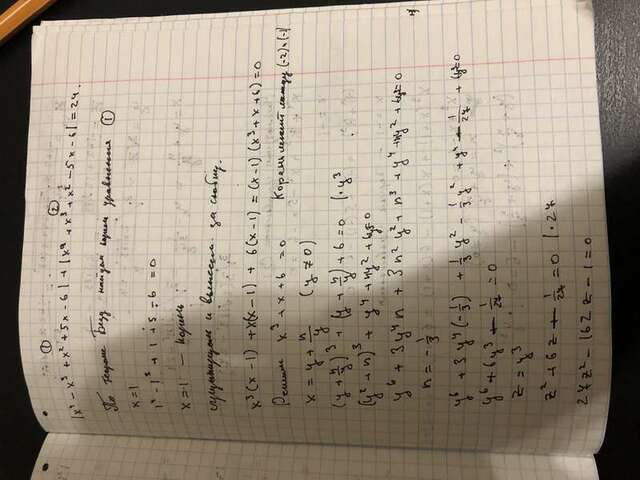 ① ②
|x⁴ - x³ + x² + 5x - 6| + |x⁴ + x³ + x² - 5x - 6| = 24.
По теореме Безу найдем корни уравнения ①
x = 1
1⁴ - 1³ + 1 + 5 - 6 = 0
x = 1 — корень
сгруппируем и вынесем за скобку.
x³(x - 1) + x(x - 1) + 6(x - 1) = (x - 1)(x³ + x + 6) = 0
Решим x³ + x + 6 = 0 Корень лежит между (-2) и (-1)
x = y + n/y (y ≠ 0)
(y + n/y)³ + (y + n/y) + 6 = 0 | · y³
(y² + n)³ + y⁴ + ny² + 6y³ = 0
y⁶ + 3y⁴n + 3n²y² + n³ + y⁴ + ny² + 6y³ = 0
n = -1/3
y⁶ + 3y⁴(-1/3) + 1/3 y² - 1/3 y² + y⁴ - 1/27 + 6y³ = 0
y⁶ + 6y³ - 1/27 = 0
z = y³
z² + 6z - 1/27 = 0 | · 27
27z² - 162z - 1 = 0